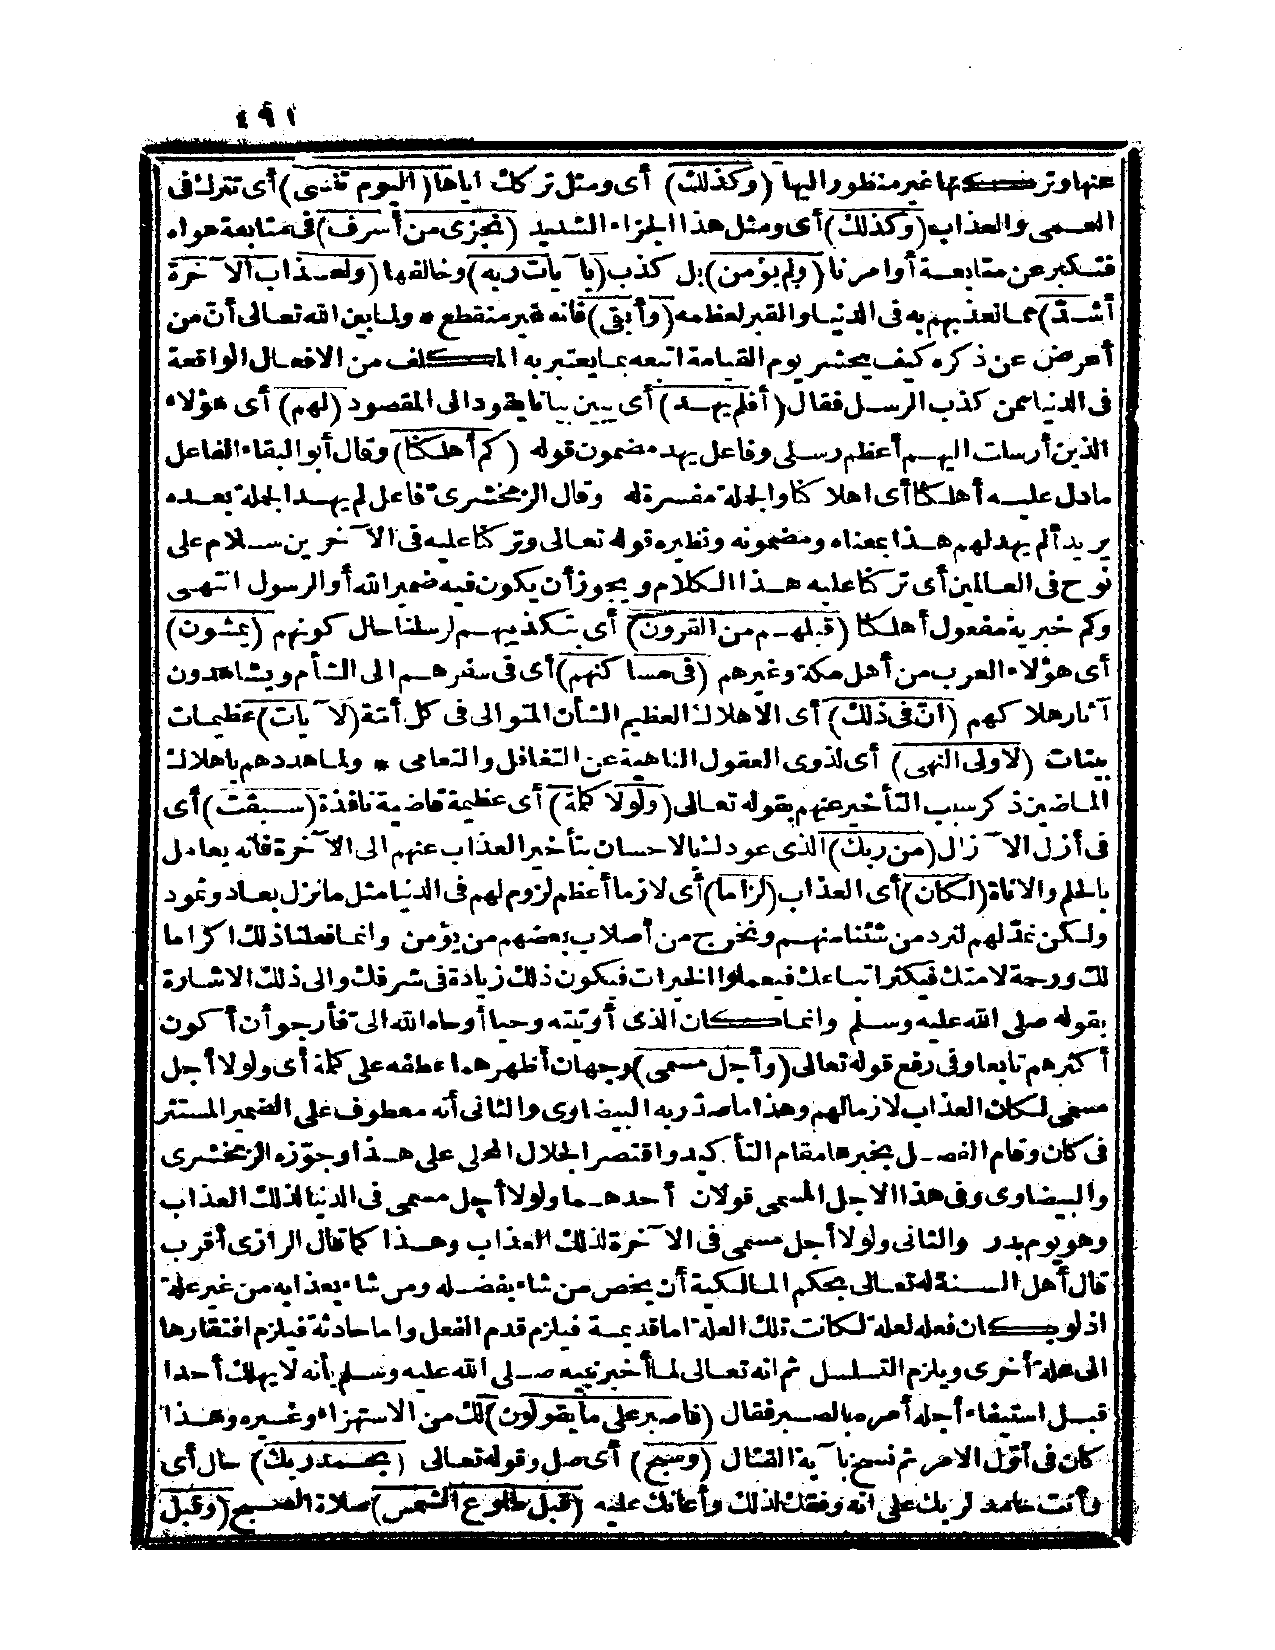 ٤٩١
عنها وتركتها غير منظور اليها (وكذلك) أى ومثل تركك اياها (اليوم تنسى) أى تترك فى
العمى والعذاب (وكذلك) أى ومثل هذا الجزاء الشديد (نجزى من أسرف) فى متابعة هواه
فتكبر عن متابعة أوامرنا (ولم يؤمن) بل كذب (بآيات ربه) وخالفها (ولعذاب الآخرة
أشدّ) مما نعذبهم به فى الدنيا والقبر لعظمه (وأبقى) فانه غير منقطع * ولما بين الله تعالى أن من
أعرض عن ذكره كيف يحشر يوم القيامة اتبعه بما يعتبر به المكلف من الافعال الواقعة
فى الدنيا بمن كذب الرسل فقال (أفلم يهد) أى يبين بيانا يقود الى المقصود (لهم) أى هؤلاء
الذين أرسلت اليهم أعظم رسلى وفاعل يهد مضمون قوله (كم أهلكنا) وقال أبو البقاء الفاعل
مادل عليه أهلكنا أى اهلاكنا والجملة مفسرة له وقال الزمخشرى فاعل لم يهد الجملة بعده
يريد ألم يهد لهم هذا بمعناه ومضمونه ونظيره قوله تعالى وتركنا عليه فى الآخرين سلام على
نوح فى العالمين أى تركنا عليه هذا الكلام ويجوز أن يكون فيه ضمير الله أو الرسول انتهى
وكم خبرية مفعول أهلكنا (قبلهم من القرون) أى بتكذيبهم لرسلنا حال كونهم (يمشون)
أى هؤلاء العرب من أهل مكة وغيرهم (فى مساكنهم) أى فى سفرهم الى الشأم ويشاهدون
آثار هلاكهم (انّ فى ذلك) أى الاهلاك العظيم الشأن المتوالى فى كل أمّة (لآيات) عظيمات
بينات (لاولى النهى) أى لذوى العقول الناهية عن التغافل والتعامى * ولما هددهم باهلاك
الماضين ذكر سبب التأخير عنهم بقوله تعالى (ولولا كلمة) أى عظيمة قاضية نافذة (سبقت) أى
فى أزل الآزال (من ربك) الذى عودك بالاحسان بتأخير العذاب عنهم الى الآخرة فانه يعامل
بالحلم والاناة (لكان) أى العذاب (لزاما) أى لازما أعظم لزوم لهم فى الدنيا مثل ما نزل بعاد وثمود
ولكن نمدّ لهم لنرد من شئنا منهم ونخرج من أصلاب بعضهم من يؤمن وانما فعلنا ذلك اكراما
لك ورحمة لامتك فيكثر اتباعك فيعملوا الخيرات فيكون ذلك زيادة فى شرفك والى ذلك الاشارة
بقوله صلى الله عليه وسلم وانما كان الذى أوتيته وحيا أوحاه الله الىّ فأرجو أن أكون
أكثرهم تابعا وفى رفع قوله تعالى (وأجل مسمى) وجهان أظهرهما عطفه على كلمة أى ولولا أجل
مسمى لكان العذاب لازما لهم وهذا ما صدّر به البيضاوى والثانى أنه معطوف على الضمير المستتر
فى كان وقام الفصل بخبرها مقام التأكيد واقتصر الجلال المحلى على هذا وجوّزه الزمخشرى
والبيضاوى وفى هذا الاجل المسمى قولان أحدهما ولولا أجل مسمى فى الدنيا لذلك العذاب
وهو يوم بدر والثانى ولولا أجل مسمى فى الآخرة لذلك العذاب وهذا كما قال الرازى أقرب
قال أهل السنة له تعالى بحكم المالكية أن يخص من شاء بفضله ومن شاء بعذابه من غير علة
اذ لو كان فعله لعلة لكانت تلك العلة اما قديمة فيلزم قدم الفعل واما حادثة فيلزم افتقارها
الى علة أخرى ويلزم التسلسل ثم انه تعالى لما أخبر نبيه صلى الله عليه وسلم بأنه لا يهلك أحدا
قبل استيفاء أجله أمره بالصبر فقال (فاصبر على ما يقولون) لك من الاستهزاء وغيره وهذا
كان فى أوّل الامر ثم نسخ بآية القتال (وسبح) أى صل وقوله تعالى (بحمد ربك) حال أى
وأنت حامد لربك على انه وفقك لذلك وأعانك عليه (قبل طلوع الشمس) صلاة الصبح (وقبل